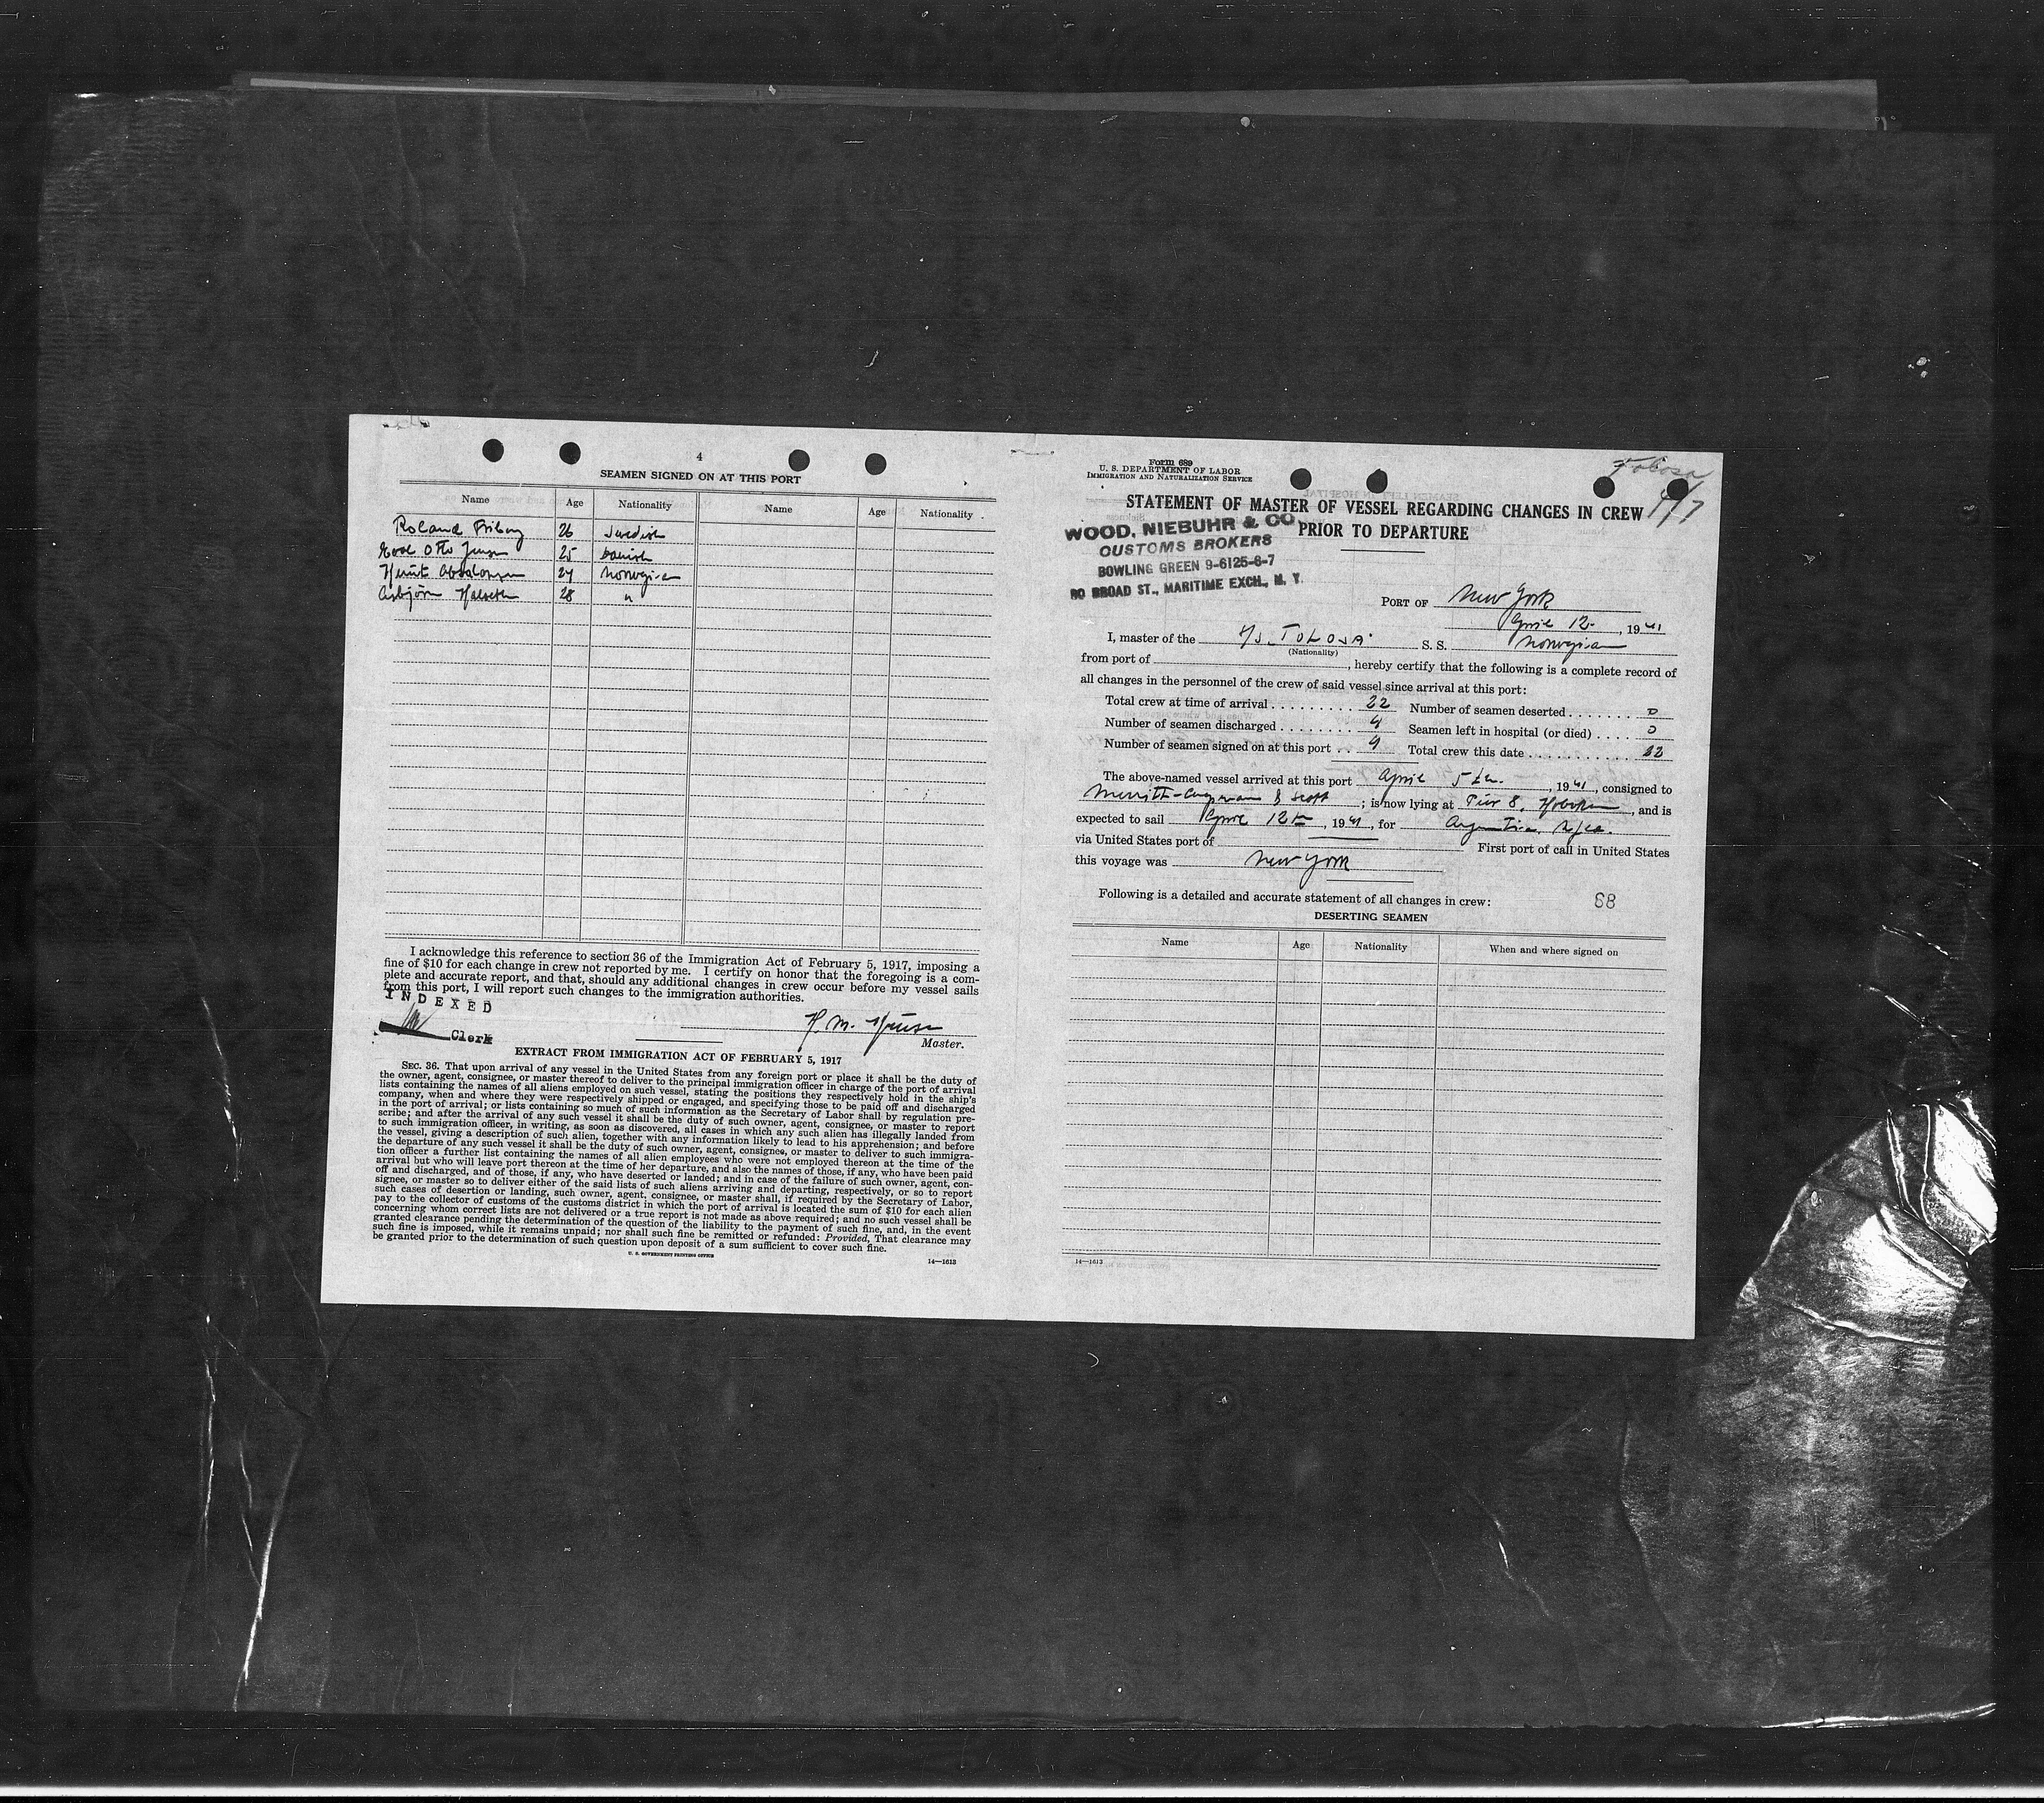 4
SEAMEN SIGNED ON AT THIS PORT
Name Age Nationality Name Age Nationality
Roland 26 Swedish
Otto 25 Danish
27 Norwegian
Asbjörn 28 "
I acknowledge this reference to section 36 of the Immigration Act of February 5, 1917, imposing a
fine of $10 for each change in crew not reported by me. I certify on honor that the foregoing is a com-
plete and accurate report, and that, should any additional changes in crew occur before my vessel sails
from this port, I will report such changes to the immigration authorities.
INDEXED
Clerk
H. M.
Master.
EXTRACT FROM IMMIGRATION ACT OF FEBRUARY 5, 1917
SEC. 36. That upon arrival of any vessel in the United States from any foreign port or place it shall be the duty of
the owner, agent, consignee, or master thereof to deliver to the principal immigration officer in charge of the port of arrival
lists containing the names of all aliens employed on such vessel, stating the positions they respectively hold in the ship's
company, when and where they were respectively shipped or engaged, and specifying those to be paid off and discharged
in the port of arrival; or lists containing so much of such information as the Secretary of Labor shall by regulation pre-
scribe; and after the arrival of any such vessel it shall be the duty of such owner, agent, consignee, or master to report
to such immigration officer, in writing, as soon as discovered, all cases in which any such alien has illegally landed from
the vessel, giving a description of such alien, together with any information likely to lead to his apprehension; and before
the departure of any such vessel it shall be the duty of such owner, agent, consignee, or master to deliver to such immigra-
tion officer a further list containing the names of all alien employees who were not employed thereon at the time of the
arrival but who will leave port thereon at the time of her departure, and also the names of those, if any, who have been paid
off and discharged, and of those, if any, who have deserted or landed; and in case of the failure of such owner, agent, con-
signee, or master so to deliver either of the said lists of such aliens arriving and departing, respectively, or so to report
such cases of desertion or landing, such owner, agent, consignee, or master shall, if required by the Secretary of Labor,
pay to the collector of customs of the customs district in which the port of arrival is located the sum of $10 for each alien
concerning whom correct lists are not delivered or a true report is not made as above required; and no such vessel shall be
granted clearance pending the determination of the question of the liability to the payment of such fine, and, in the event
such fine is imposed, while it remains unpaid; nor shall such fine be remitted or refunded: Provided, That clearance may
be granted prior to the determination of such question upon deposit of a sum sufficient to cover such fine.
U. S. GOVERNMENT PRINTING OFFICE
14—1613
Form 689
U. S. DEPARTMENT OF LABOR
IMMIGRATION AND NATURALIZATION SERVICE
STATEMENT OF MASTER OF VESSEL REGARDING CHANGES IN CREW
PRIOR TO DEPARTURE
WOOD, NIEBUHR & CO
CUSTOMS BROKERS
BOWLING GREEN 9-6125-6-7
80 BROAD ST., MARITIME EXCH., N. Y.
PORT OF New York
April 12, 1941
I, master of the S. S. Norwegian
(Nationality)
from port of , hereby certify that the following is a complete record of
all changes in the personnel of the crew of said vessel since arrival at this port:
Total crew at time of arrival 22 Number of seamen deserted 0
Number of seamen discharged 4 Seamen left in hospital (or died) 0
Number of seamen signed on at this port 4 Total crew this date 22
The above-named vessel arrived at this port April 5th, 1941, consigned to
Merritt-Chapman & Scott ; is now lying at Pier 8, Hoboken, and is
expected to sail April 12th, 1941, for
via United States port of First port of call in United States
this voyage was New York
Following is a detailed and accurate statement of all changes in crew:
68
DESERTING SEAMEN
Name Age Nationality When and where signed on
14—1613